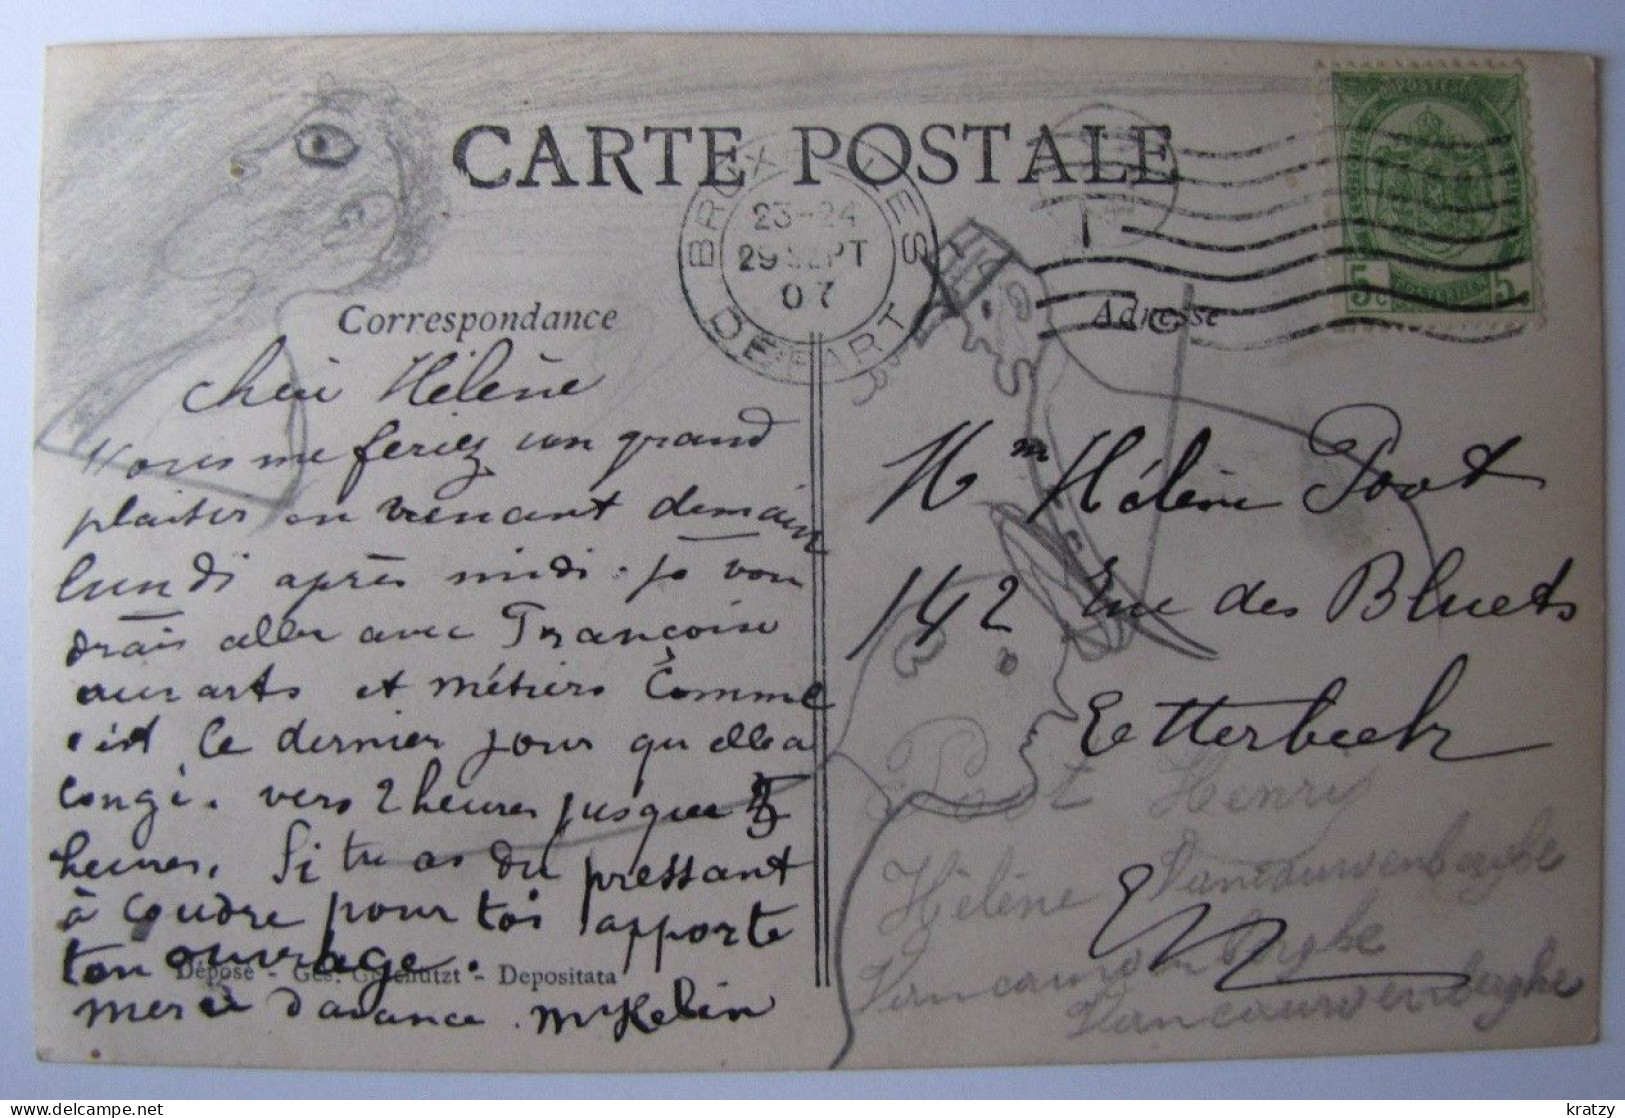 CARTE POSTALE
BRUXELLES
23-24
29 SEPT
07
DEPART
5c 5c
Correspondance
Adresse
Chère Hélène
Vous me feriez un grand
plaisir en venant demain
lundi après midi. je vou
drais aller avec Françoise
aux arts et métiers Comme
c'est le dernier jour qu'elle a
congé. vers 2 heures jusque 5
heures. Si tu as du pressant
à coudre pour toi apporte
ton ouvrage.
Déposé - Ges. Geschützt - Depositata
merci d'avance. Mme Kelin
Mm Hélène Poot
142 Rue des Bluets
Etterbeek
Poot Henri
Hélène Vancauwenberghe
Vancauwenberghe
Vancauwenberghe
kratzy